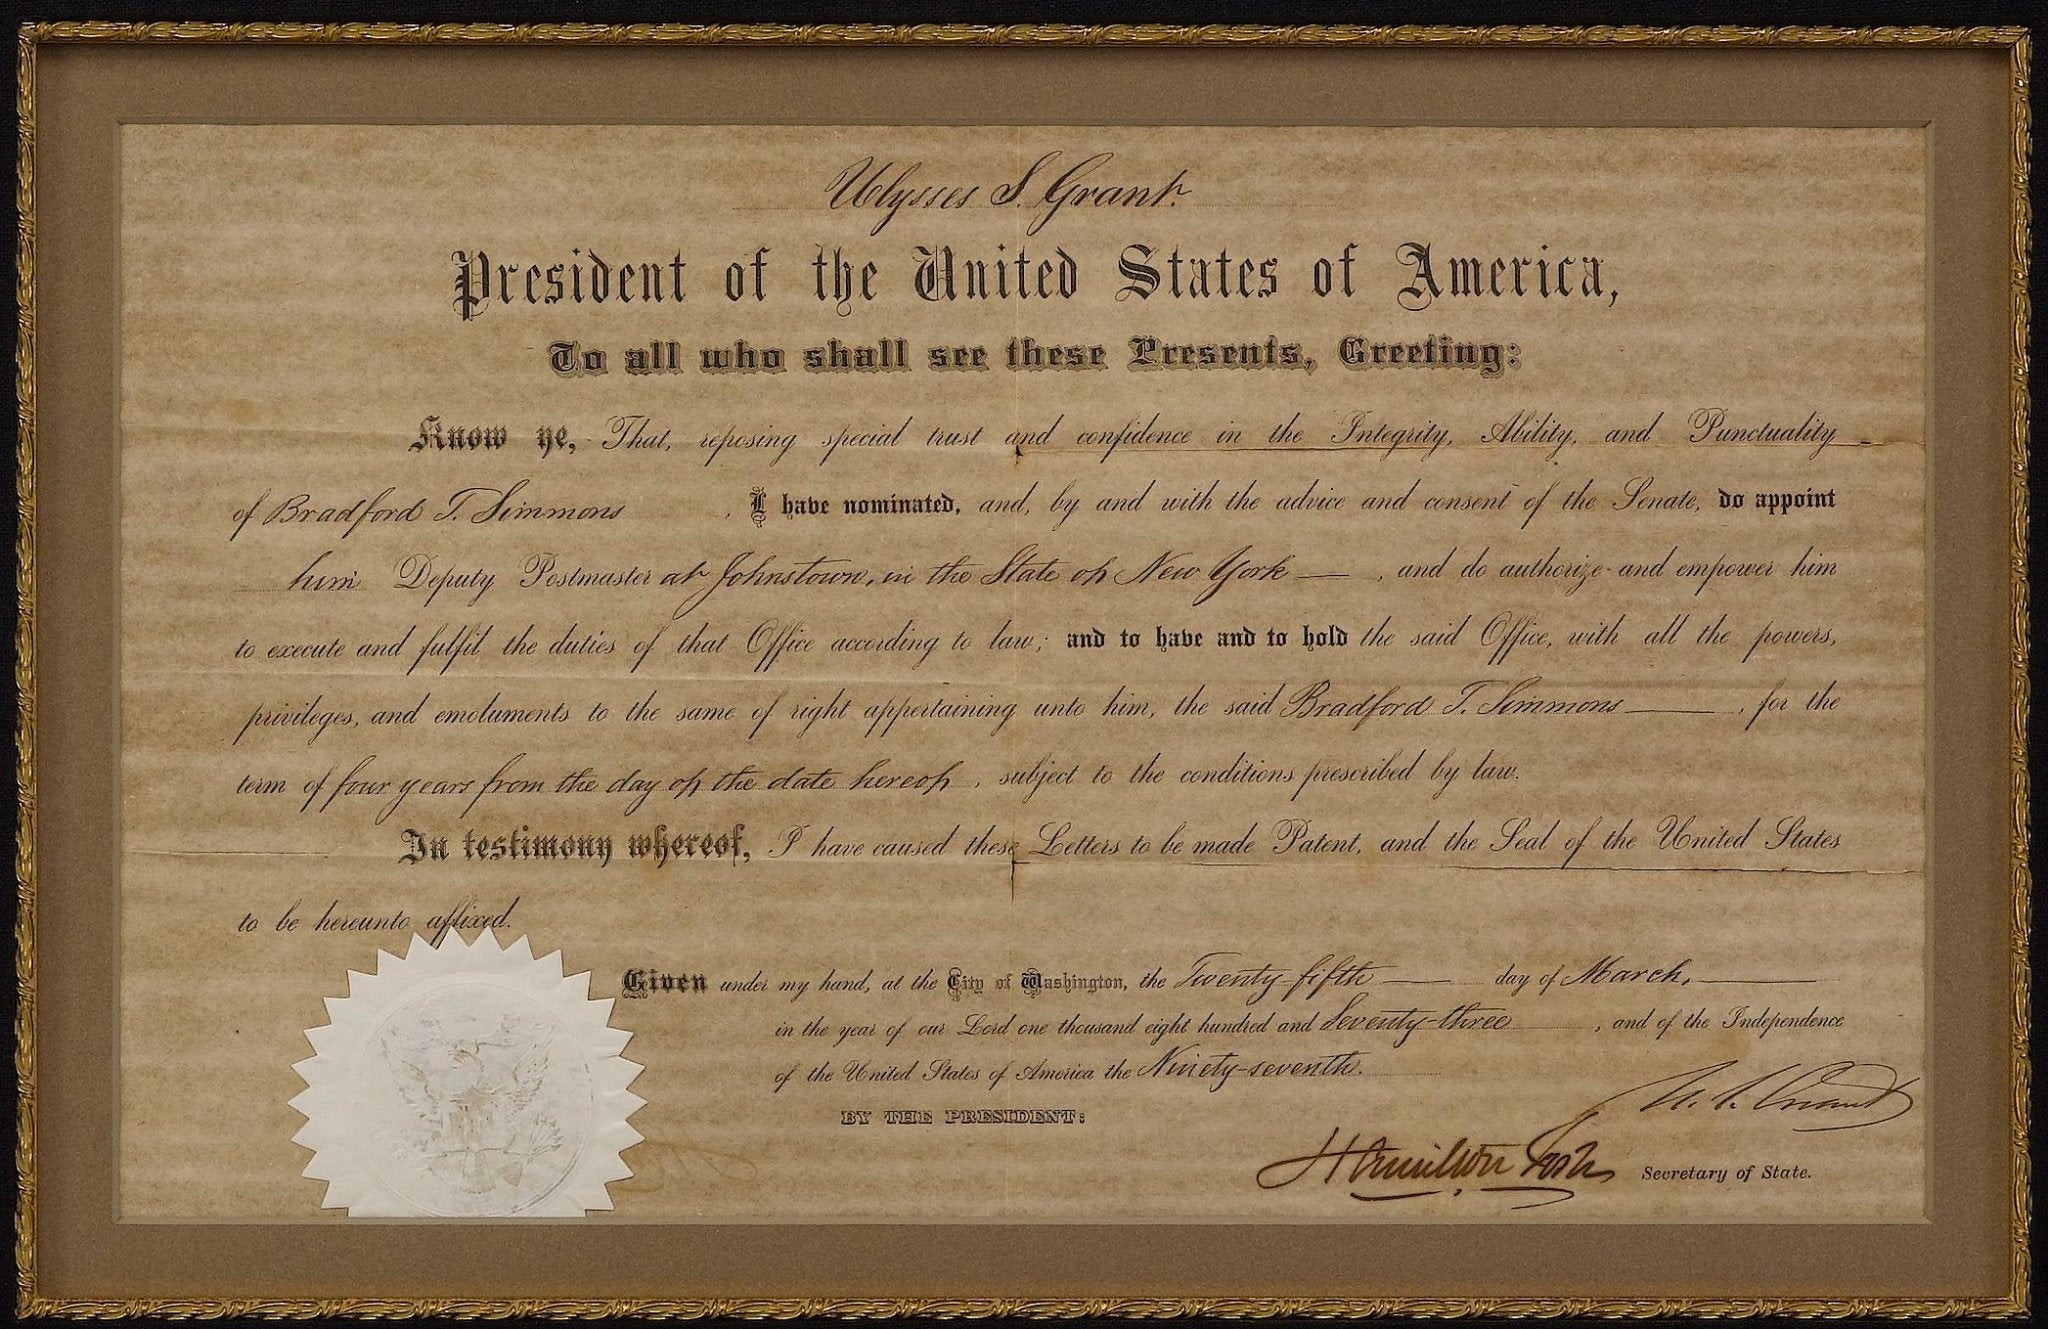 Ulysses S. Grant.
President of the United States of America,
To all who shall see these Presents, Greeting:
Know ye, That, reposing special trust and confidence in the Integrity, Ability, and Punctuality
of Bradford T. Simmons, I have nominated, and, by and with the advice and consent of the Senate, do appoint
him Deputy Postmaster at Johnstown, in the State of New York — , and do authorize and empower him
to execute and fulfil the duties of that Office according to law; and to have and to hold the said Office, with all the powers,
privileges, and emoluments to the same of right appertaining unto him, the said Bradford T. Simmons — , for the
term of four years from the day of the date hereof, subject to the conditions prescribed by law.
In testimony whereof, I have caused these Letters to be made Patent, and the Seal of the United States
to be hereunto affixed.
Given under my hand, at the City of Washington, the Twenty-fifth — day of March, —
in the year of our Lord one thousand eight hundred and Seventy-three, and of the Independence
of the United States of America the Ninety-seventh.
U. S. Grant
BY THE PRESIDENT:
Hamilton Fish Secretary of State.